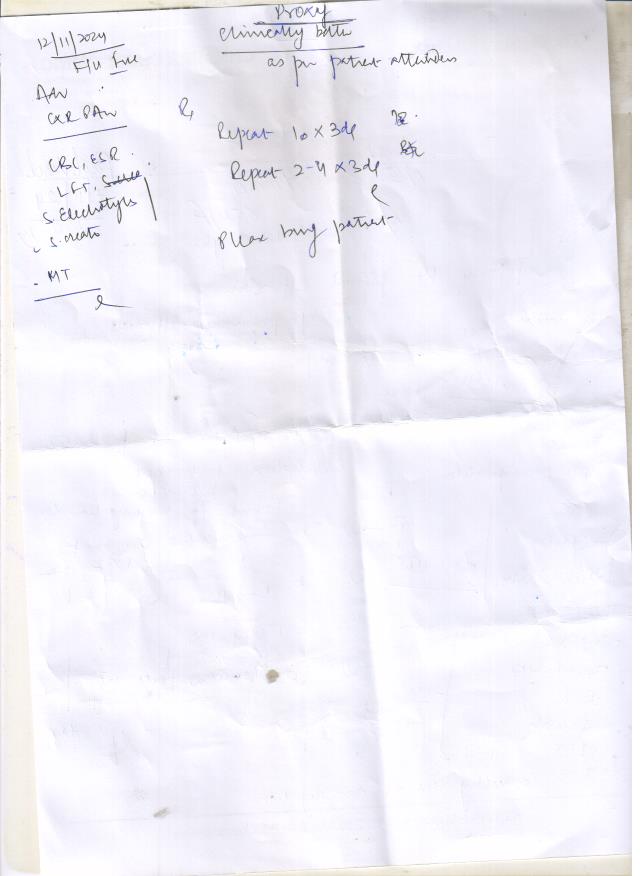 Proxy
12/11/2024 Clinically better
F/U
as per patient attenders
Adv
CXR PAv
Rx
Repeat 10 x 3d
CBC, ESR
Repeat 2-4 x 3d
LFT,
S. Electrolytes
S. creat
Please bring patient
- MT